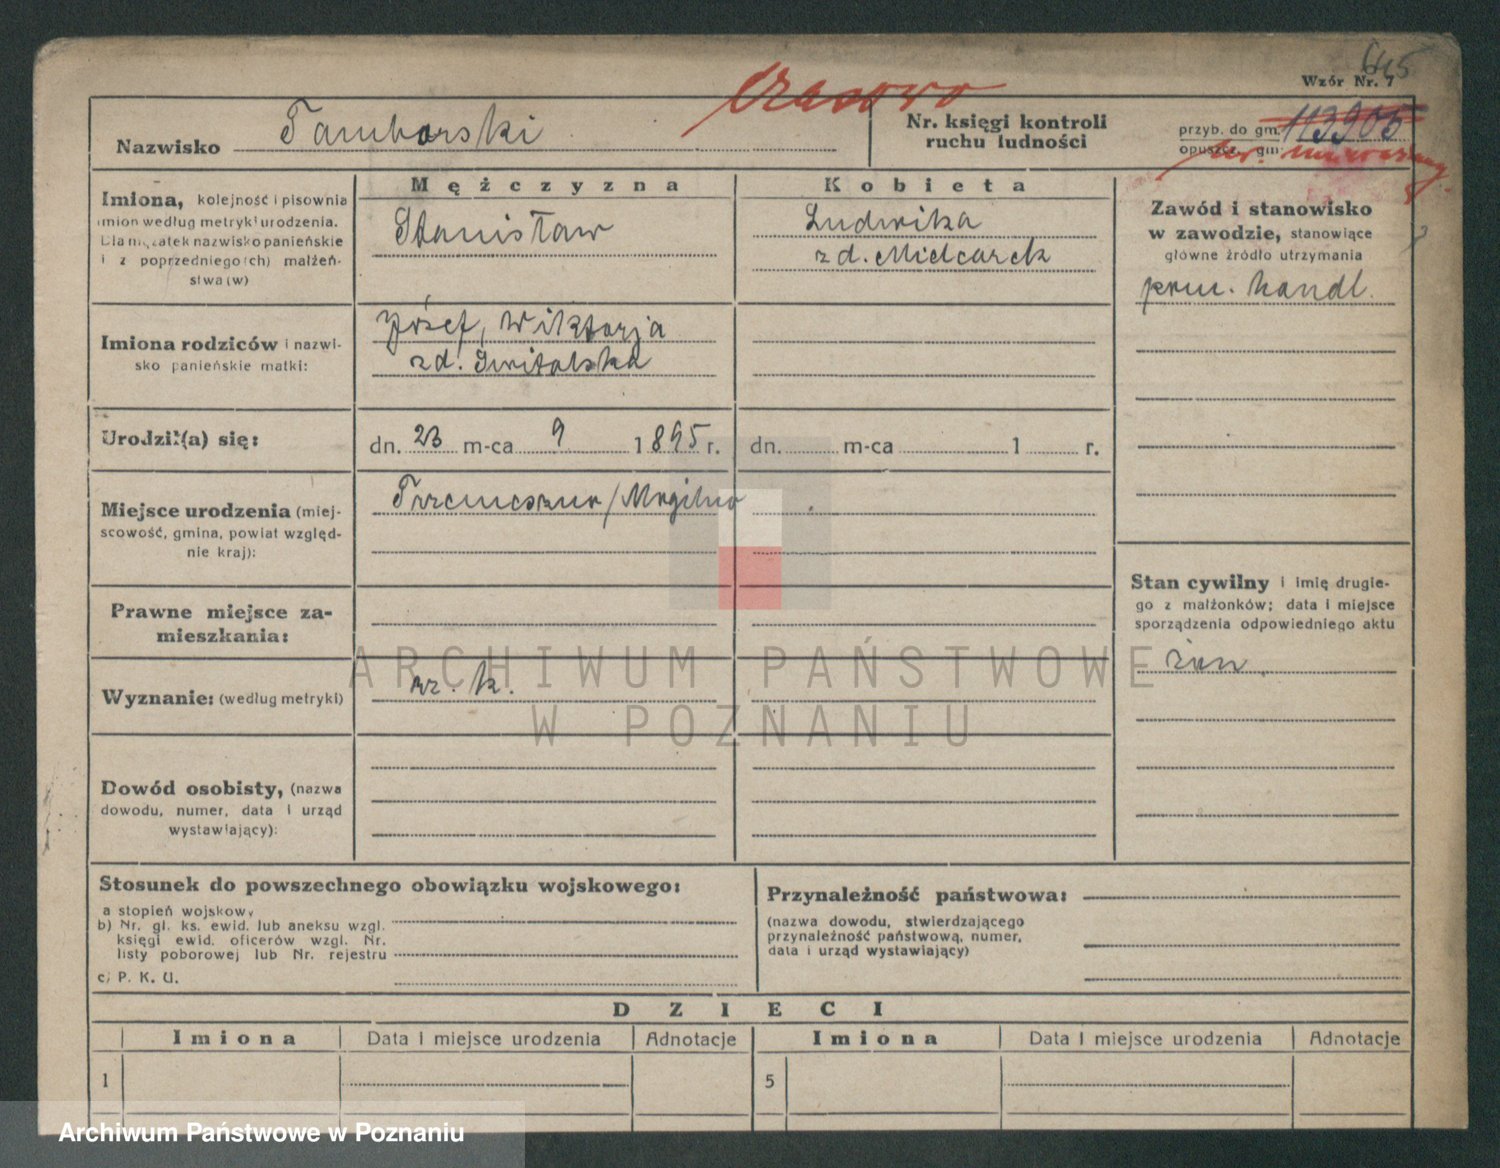 645
Wzór Nr. 7
czasowo
Nazwisko Tamborski
Nr. księgi kontroli
ruchu ludności
przyb. do gm. 113905
opuszcz. gm:
nr. unieważn.
Imiona, kolejność i pisownia
imion według metryki urodzenia.
Dla mężatek nazwisko panieńskie
i z poprzedniego(ch) małżeń-
stwa(w)
Mężczyzna
Stanisław
Kobieta
Ludwika
zd. Mielcarek
Zawód i stanowisko
w zawodzie, stanowiące
główne źródło utrzymania
prac. handl.
Imiona rodziców i nazwi-
sko panieńskie matki:
Józef, Wiktorja
zd. Świtalska
Urodził(a) się:
dn. 23 m-ca 9 1895 r.
dn. m-ca 1 r.
Miejsce urodzenia (miej-
scowość, gmina, powiat względ-
nie kraj):
Trzemeszno/Mogilno
Stan cywilny i imię drugie-
go z małżonków; data i miejsce
sporządzenia odpowiedniego aktu
żon.
Prawne miejsce za-
mieszkania:
Wyznanie: (według metryki)
rz. k.
ARCHIWUM PAŃSTWOWE
W POZNANIU
Dowód osobisty, (nazwa
dowodu, numer, data i urząd
wystawiający):
Stosunek do powszechnego obowiązku wojskowego:
a stopień wojskowy
b) Nr. gl. ks. ewid. lub aneksu wzgl.
księgi ewid. oficerów wzgl. Nr.
listy poborowej lub Nr. rejestru
c) P. K. U.
Przynależność państwowa:
(nazwa dowodu, stwierdzającego
przynależność państwową, numer,
data i urząd wystawiający)
DZIECI
Imiona Data i miejsce urodzenia Adnotacje Imiona Data i miejsce urodzenia Adnotacje
1 5
Archiwum Państwowe w Poznaniu